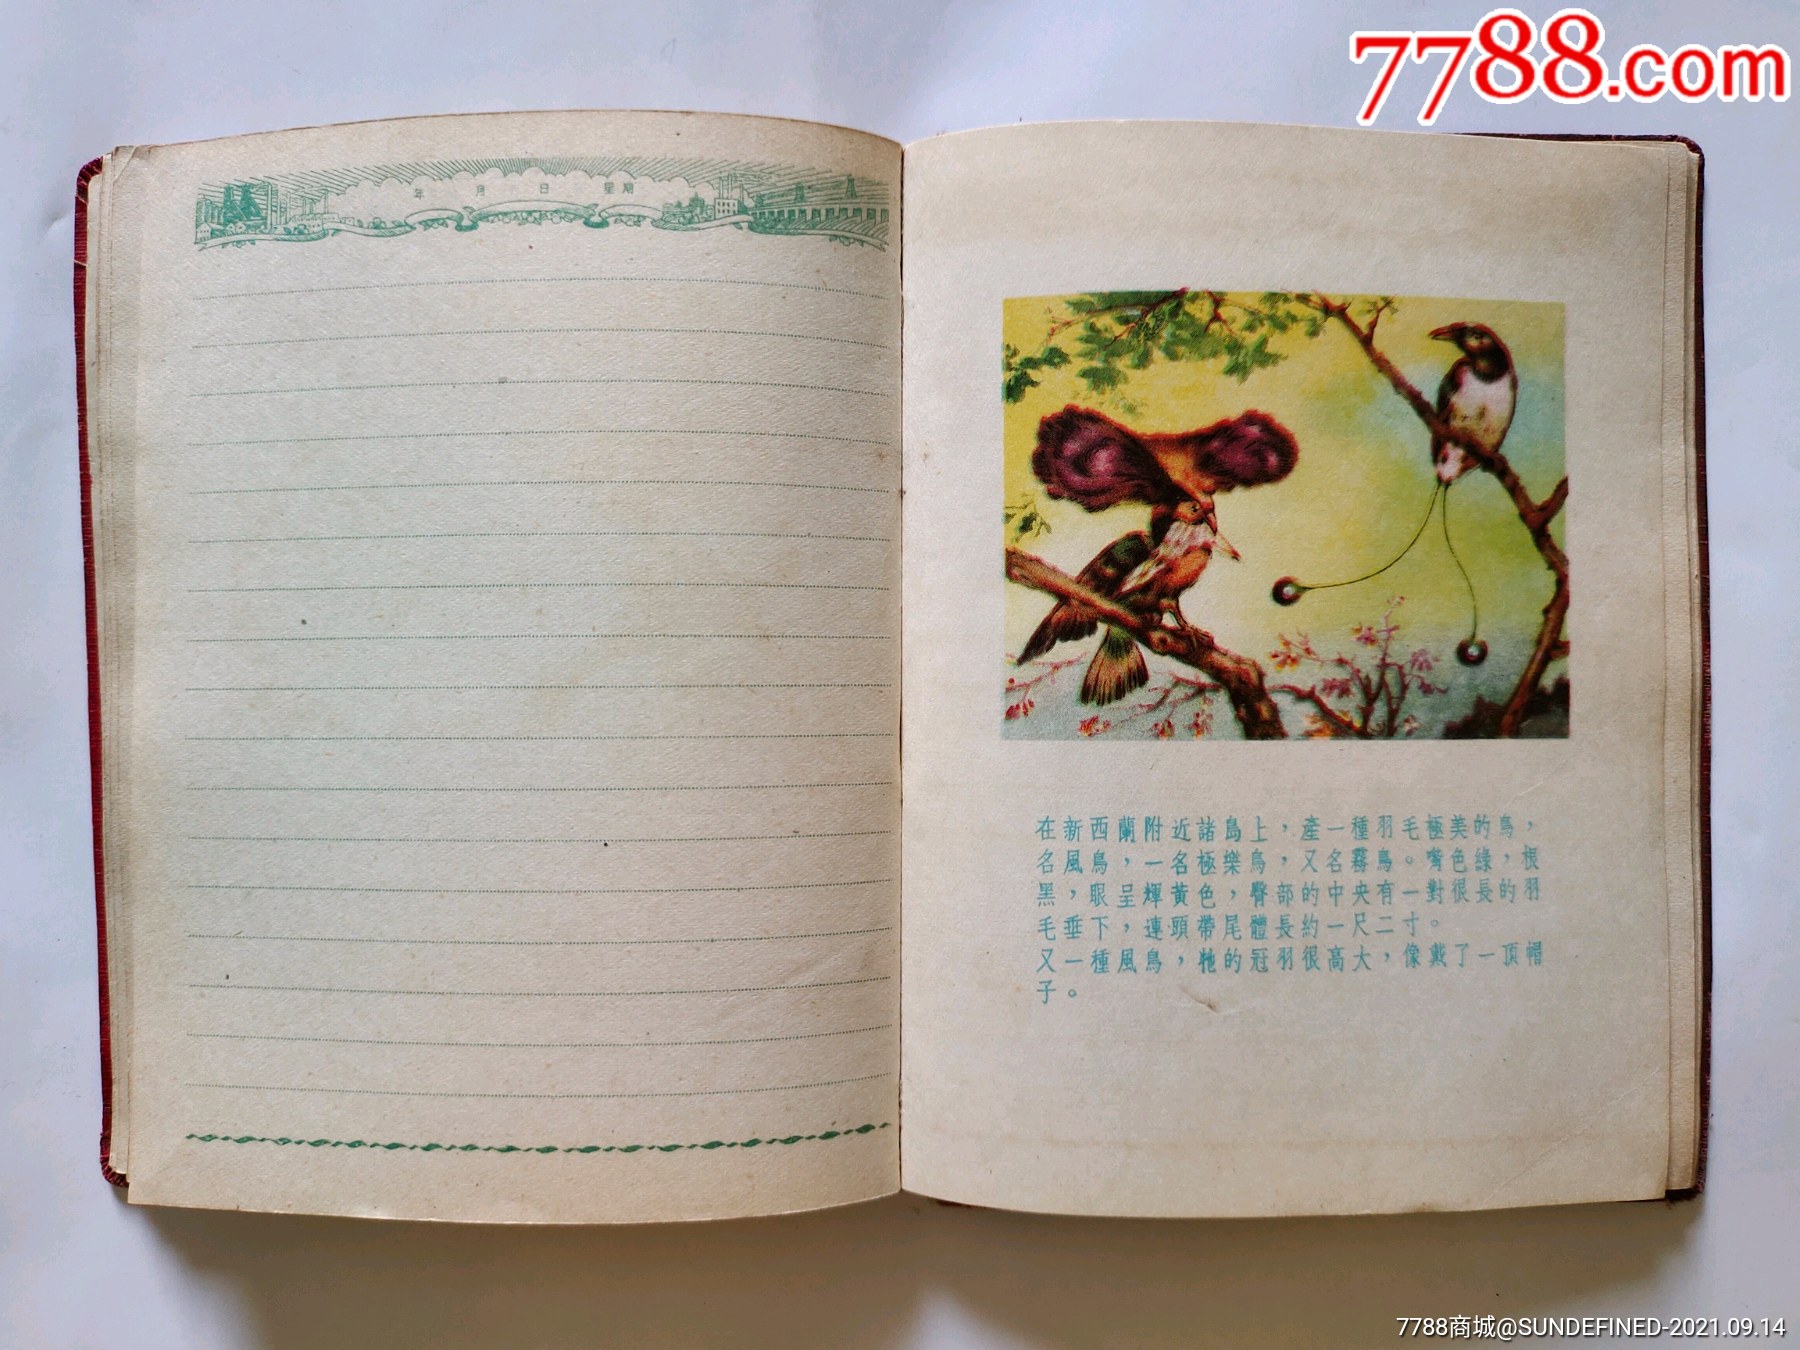 7788.com
年 月 日 星期
在新西蘭附近諸島上，產一種羽毛極美的鳥，
名風鳥，一名極樂鳥，又名霧鳥。嘴色綠，根
黑，眼呈輝黃色，臀部的中央有一對很長的羽
毛垂下，連頭帶尾體長約一尺二寸。
又一種風鳥，牠的冠羽很高大，像戴了一頂帽
子。
7788商城@SUNDEFINED-2021.09.14